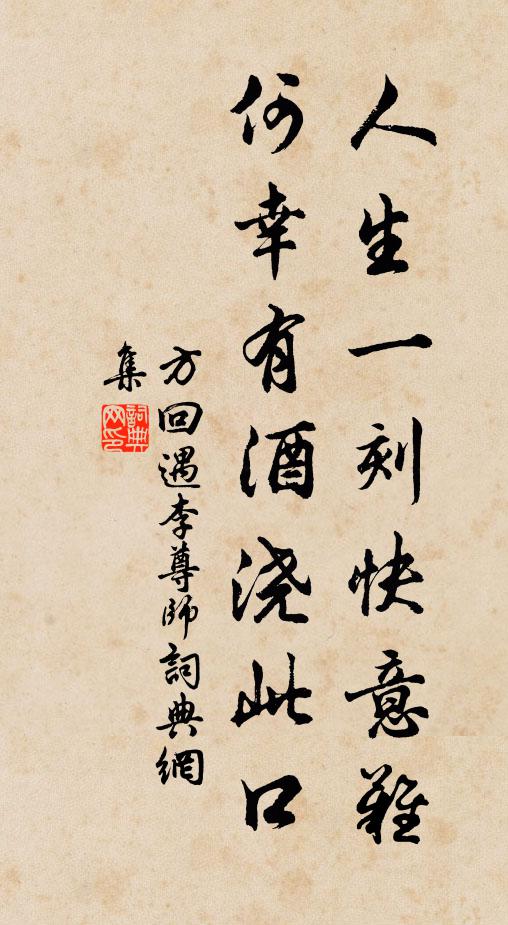 人生一刻快意难
何幸有酒浇此口
方回遇李尊師詞典網
集
詞典网印